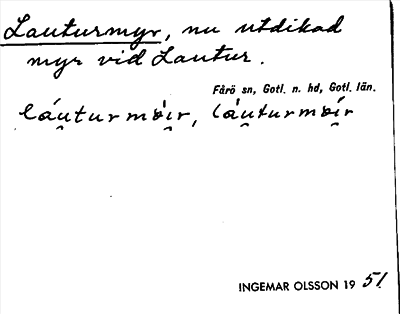 Lauturmyr, nu utdikad
myr vid Lautur.
Fårö sn, Gotl. n. hd, Gotl. län.
láu̯turmɵi̯r, láu̯turmɵí̯r
INGEMAR OLSSON 19 51